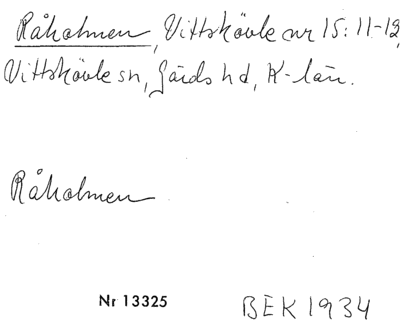 Råholmen, Vittskövle nr 15:11-12,
Vittskövle sn, Gärds hd, K-län.
Råholmen
Nr 13325
BEK 1934